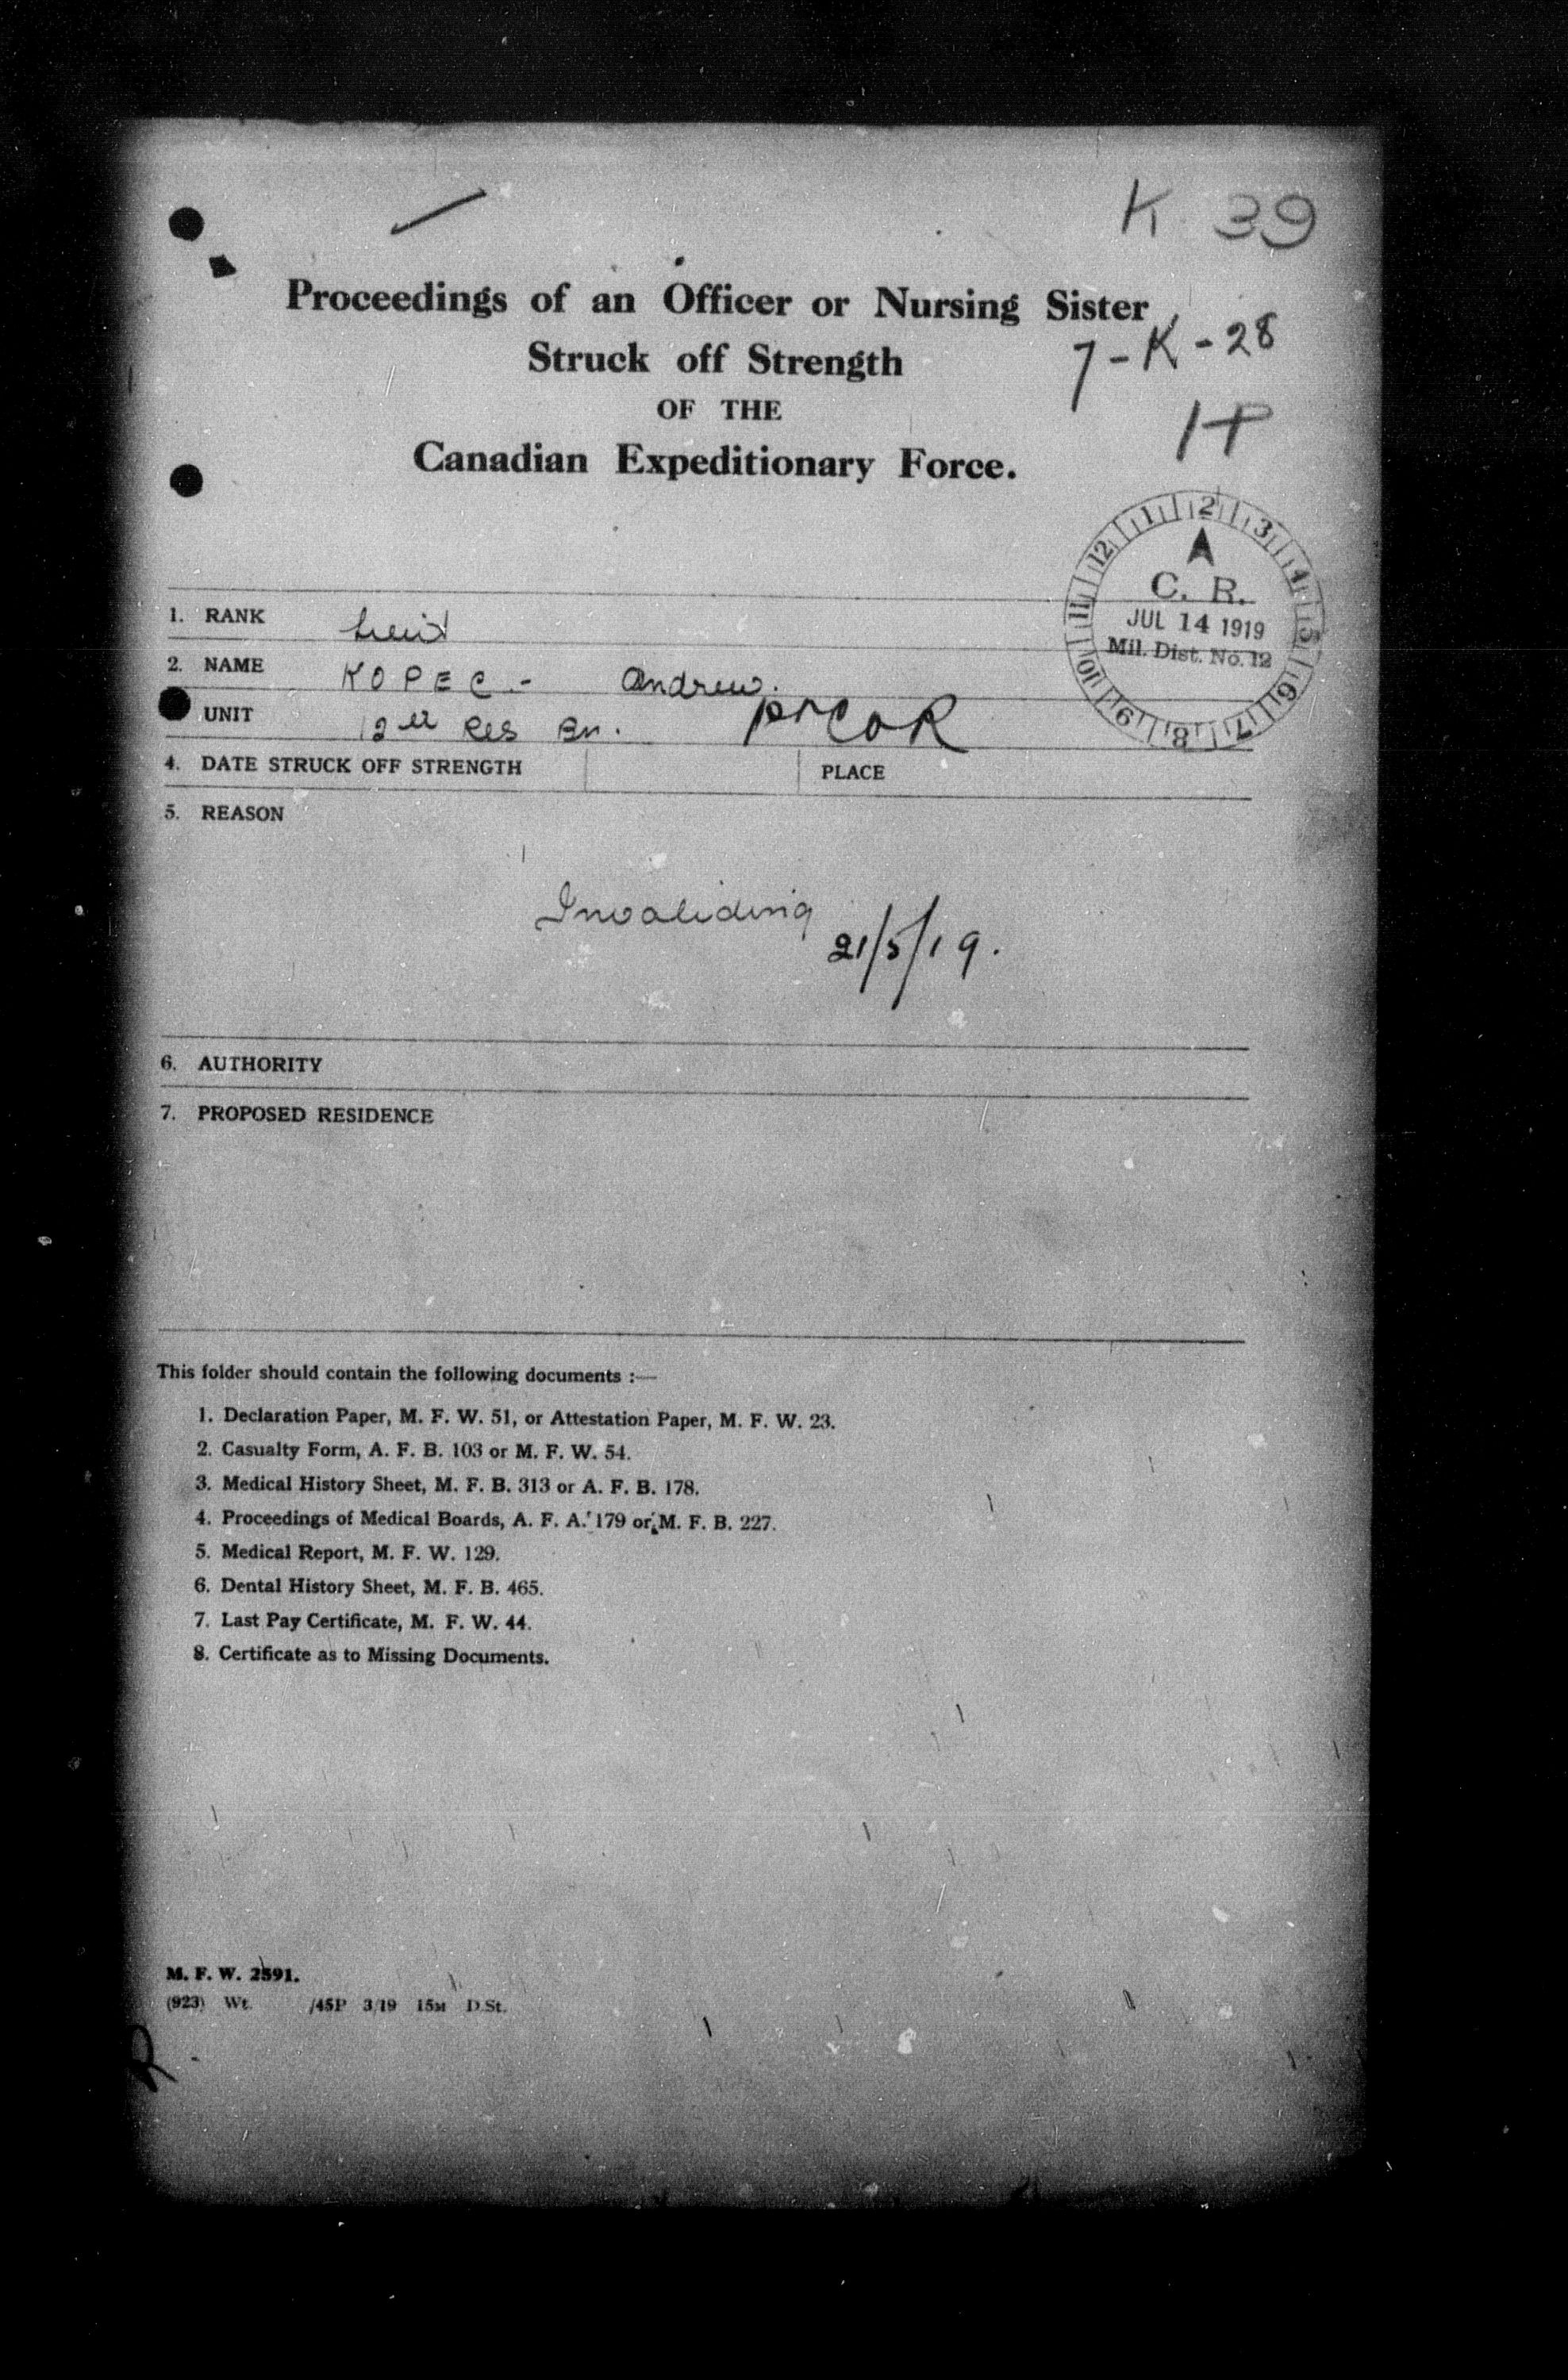 K 39
Proceedings of an Officer or Nursing Sister
7-K-28
Struck off Strength
OF THE
Canadian Expeditionary Force.
12 1 2 3 4 5 6 7 8 9 10 11
C. R.
JUL 14 1919
Mil. Dist. No. 12
1. RANK Lieut
2. NAME KOPEC - Andrew.
UNIT Res Bn.
4. DATE STRUCK OFF STRENGTH PLACE
5. REASON
Invaliding
21/5/19.
6. AUTHORITY
7. PROPOSED RESIDENCE
This folder should contain the following documents :—
1. Declaration Paper, M. F. W. 51, or Attestation Paper, M. F. W. 23.
2. Casualty Form, A. F. B. 103 or M. F. W. 54.
3. Medical History Sheet, M. F. B. 313 or A. F. B. 178.
4. Proceedings of Medical Boards, A. F. A. 179 or M. F. B. 227.
5. Medical Report, M. F. W. 129.
6. Dental History Sheet, M. F. B. 465.
7. Last Pay Certificate, M. F. W. 44.
8. Certificate as to Missing Documents.
M. F. W. 2591.
(923) Wt. /45P 3/19 15M D.St.
R